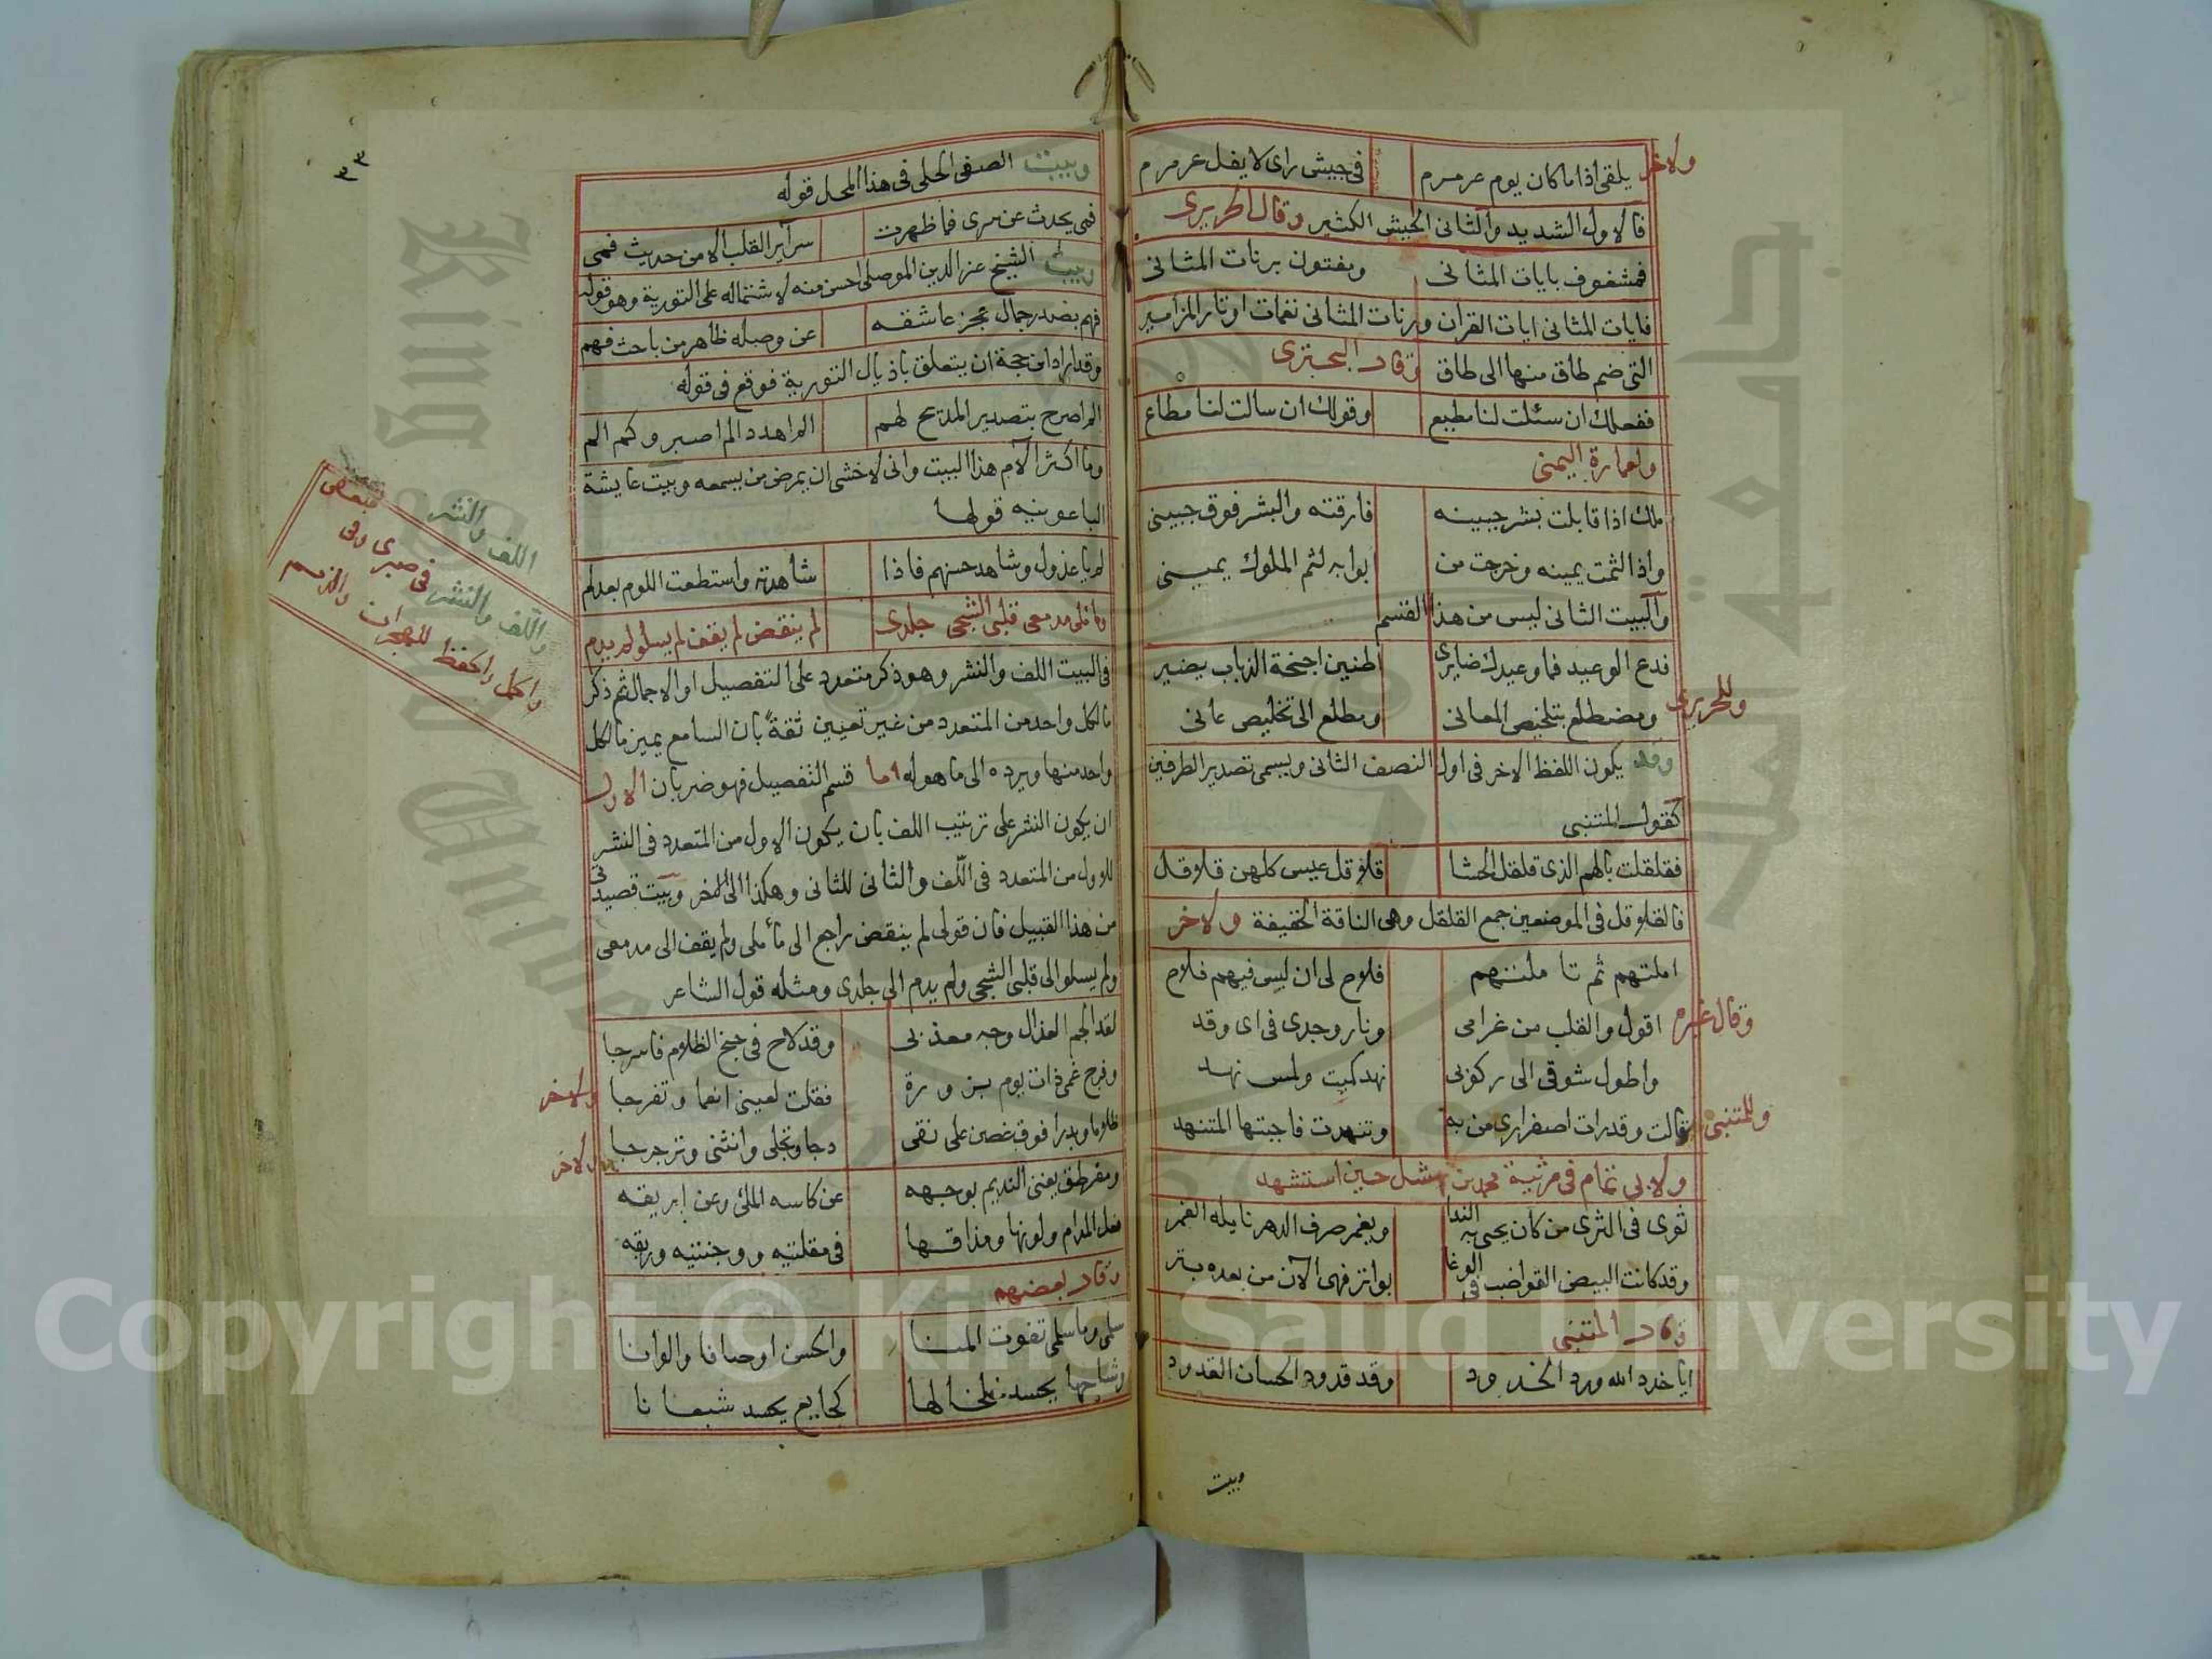 ولاخر
يلقى اذا ما كان يوم عرمرم في جيش راى لا يفل عرمرم
فالاول الشديد والثانى الجيش الكثير وقال الحريرى
فمشغوف بايات المثانى ومفتون برنات المثانى
فايات المثانى ايات القران ورنات المثانى نغمات اوتار المزامير
التى ضم طاق منها الى طاق وقال البحترى
ففعلك ان سئلت لنا مطيع وقولك ان سالت لنا مطاع
ولعمارة اليمنى
ملك اذا قابلت بشر جبينه فارقته والبشر فوق جبينى
واذا لثمت يمينه وخرجت من بوابه لثم الملوك يمينى
والبيت الثانى ليس من هذا القسم
فدع الوعيد فما وعيدك ضايرى اطنين اجنحة الذباب يضير
وللحريرى
ومضطلع بتلخيص المعانى ومطلع الى تخليص عانى
وقد يكون اللفظ الاخر فى اول النصف الثانى ويسمى تصدير الطرفين
كقول المتنبى
فقلقلت بالهم الذى قلقل الحشا قلاقل عيس كلهن قلاقل
فالقلاقل فى الموضعين جمع القلقل وهى الناقة الخفيفة ولاخر
املتهم ثم تاملتهم فلاح لى ان ليس فيهم فلاح
وقال غيره
اقول والقلب من غرامى ونار وجدى فى اى وقد
واطول شوقى الى ركوبى نهد كميت ولمس نهد
وللمتنبى
قالت وقد رات اصفرارى من به وتنهدت فاجبتها المتنهد
ولابى تمام فى مرثية محمد بن نهشل حين استشهد
ثوى فى الثرى من كان يحيى به الندا ويغمر صرف الدهر نايله الغمر
وقد كانت البيض القواضب فى الوغا بواتر فهى الآن من بعده بتر
وقال المتنبى
ايا خدد الله ورد الخدود وقد قدود الحسان القدود
وبيت
٣٣
وبيت الصفى الحلى فى هذا المحل قوله
فمى يحدث عن سرى فما ظهرت سرآير القلب الا من حديث فمى
وبيت الشيخ عز الدين الموصلى احسن منه لاشتماله على التورية وهو قوله
فهم بصدر جمال عجز عاشقه عن وصله ظاهر من باحث فهم
وقد اراد ابن حجة ان يتعلق باذيال التورية فوقع فى قوله
الم اصرح بتصدير المديح لهم الم اهدد الم اصبر وكم الم
وما اكثر آلام هذا البيت وانى لاخشى ان يمرض من يسمعه وبيت عايشة
الباعونيه قولها
لم يا عذول وشاهد حسنهم فاذا شاهدته واستطعت اللوم بعد لم
ماملى مدمعى قلبى الشجى جلدى لم ينقض لم يقف لم يسلو لم يدم
فى البيت اللف والنشر وهو ذكر متعدد على التفصيل او الاجمال ثم ذكر
ما لكل واحد من المتعدد من غير تعيين ثقة بان السامع يميز ما لكل
واحد منها ويرده الى ما هو له اما قسم التفصيل فهو ضربان الاول
ان يكون النشر على ترتيب اللف بان يكون الاول من المتعدد فى النشر
للاول من المتعدد فى اللف والثانى للثانى وهكذا الى الاخر وبيت قصيدتى
من هذا القبيل فان قولى لم ينقض راجع الى مأملى ولم يقف الى مدمعى
ولم يسلو الى قلبى الشجى ولم يدم الى جلدى ومثله قول الشاعر
لقد الجم العذال وجه معذبى وقد لاح فى جنح الظلام فاسرجا
وفرج غمى ذات يوم بزورة فقلت لعينى انعما وتفرجا
ولاخر
ظلاما وبدرا فوق غصن على نقى دجا وتجلى وانثنى وترجرجا
ولاخر
ومقرطق يغنى النديم بوجهه عن كاسه الملئ وعن ابريقه
فعل المدام ولونها ومذاقها فى مقلتيه ووجنتيه وريقه
وقال بعضهم
سلمى وما سلمى تفوت المنا والحسن اوصافا والوانا
وشاحها يحسد خلخالها كجايع يحسد شبعانا
اللف والنشر
واللف والنشر فى صبرى وفى
واكمل واحفظ للهجران
Copyright © King Saud University
King Saud University
جامعة الملك سعود